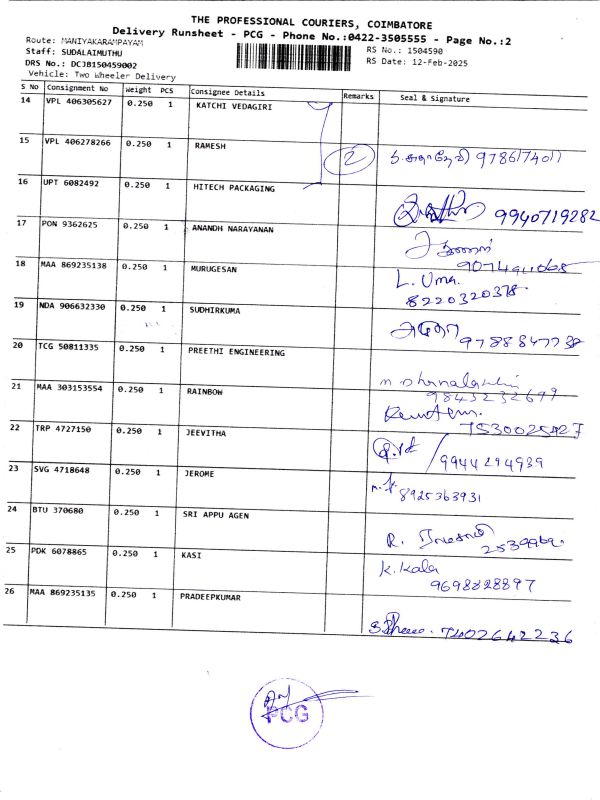 THE PROFESSIONAL COURIERS, COIMBATORE
Delivery Runsheet - PCG - Phone No.:0422-3505555 - Page No.:2
Route: MANIYAKARAMPAYAM
RS No.: 1504590
Staff: SUDALAIMUTHU
RS Date: 12-Feb-2025
DRS No.: DCJB150459002
Vehicle: Two Wheeler Delivery
S No Consignment No Weight PCS Consignee Details Remarks Seal & Signature
14 VPL 406305627 0.250 1 KATCHI VEDAGIRI
15 VPL 406278266 0.250 1 RAMESH 2
16 UPT 6082492 0.250 1 HITECH PACKAGING 9940719282
17 PON 9362625 0.250 1 ANANDH NARAYANAN
18 MAA 869235138 0.250 1 MURUGESAN L. Uma. 8220320378
19 NDA 906632330 0.250 1 SUDHIRKUMA
20 TCG 50811335 0.250 1 PREETHI ENGINEERING 9843232699
21 MAA 303153554 0.250 1 RAINBOW 7530025427
22 TRP 4727150 0.250 1 JEEVITHA 9944294939
23 SVG 4718648 0.250 1 JEROME 8925363931
24 BTU 370680 0.250 1 SRI APPU AGEN R.
25 PDK 6078865 0.250 1 KASI K. Kala 9698828897
26 MAA 869235135 0.250 1 PRADEEPKUMAR 7402642236
PCG